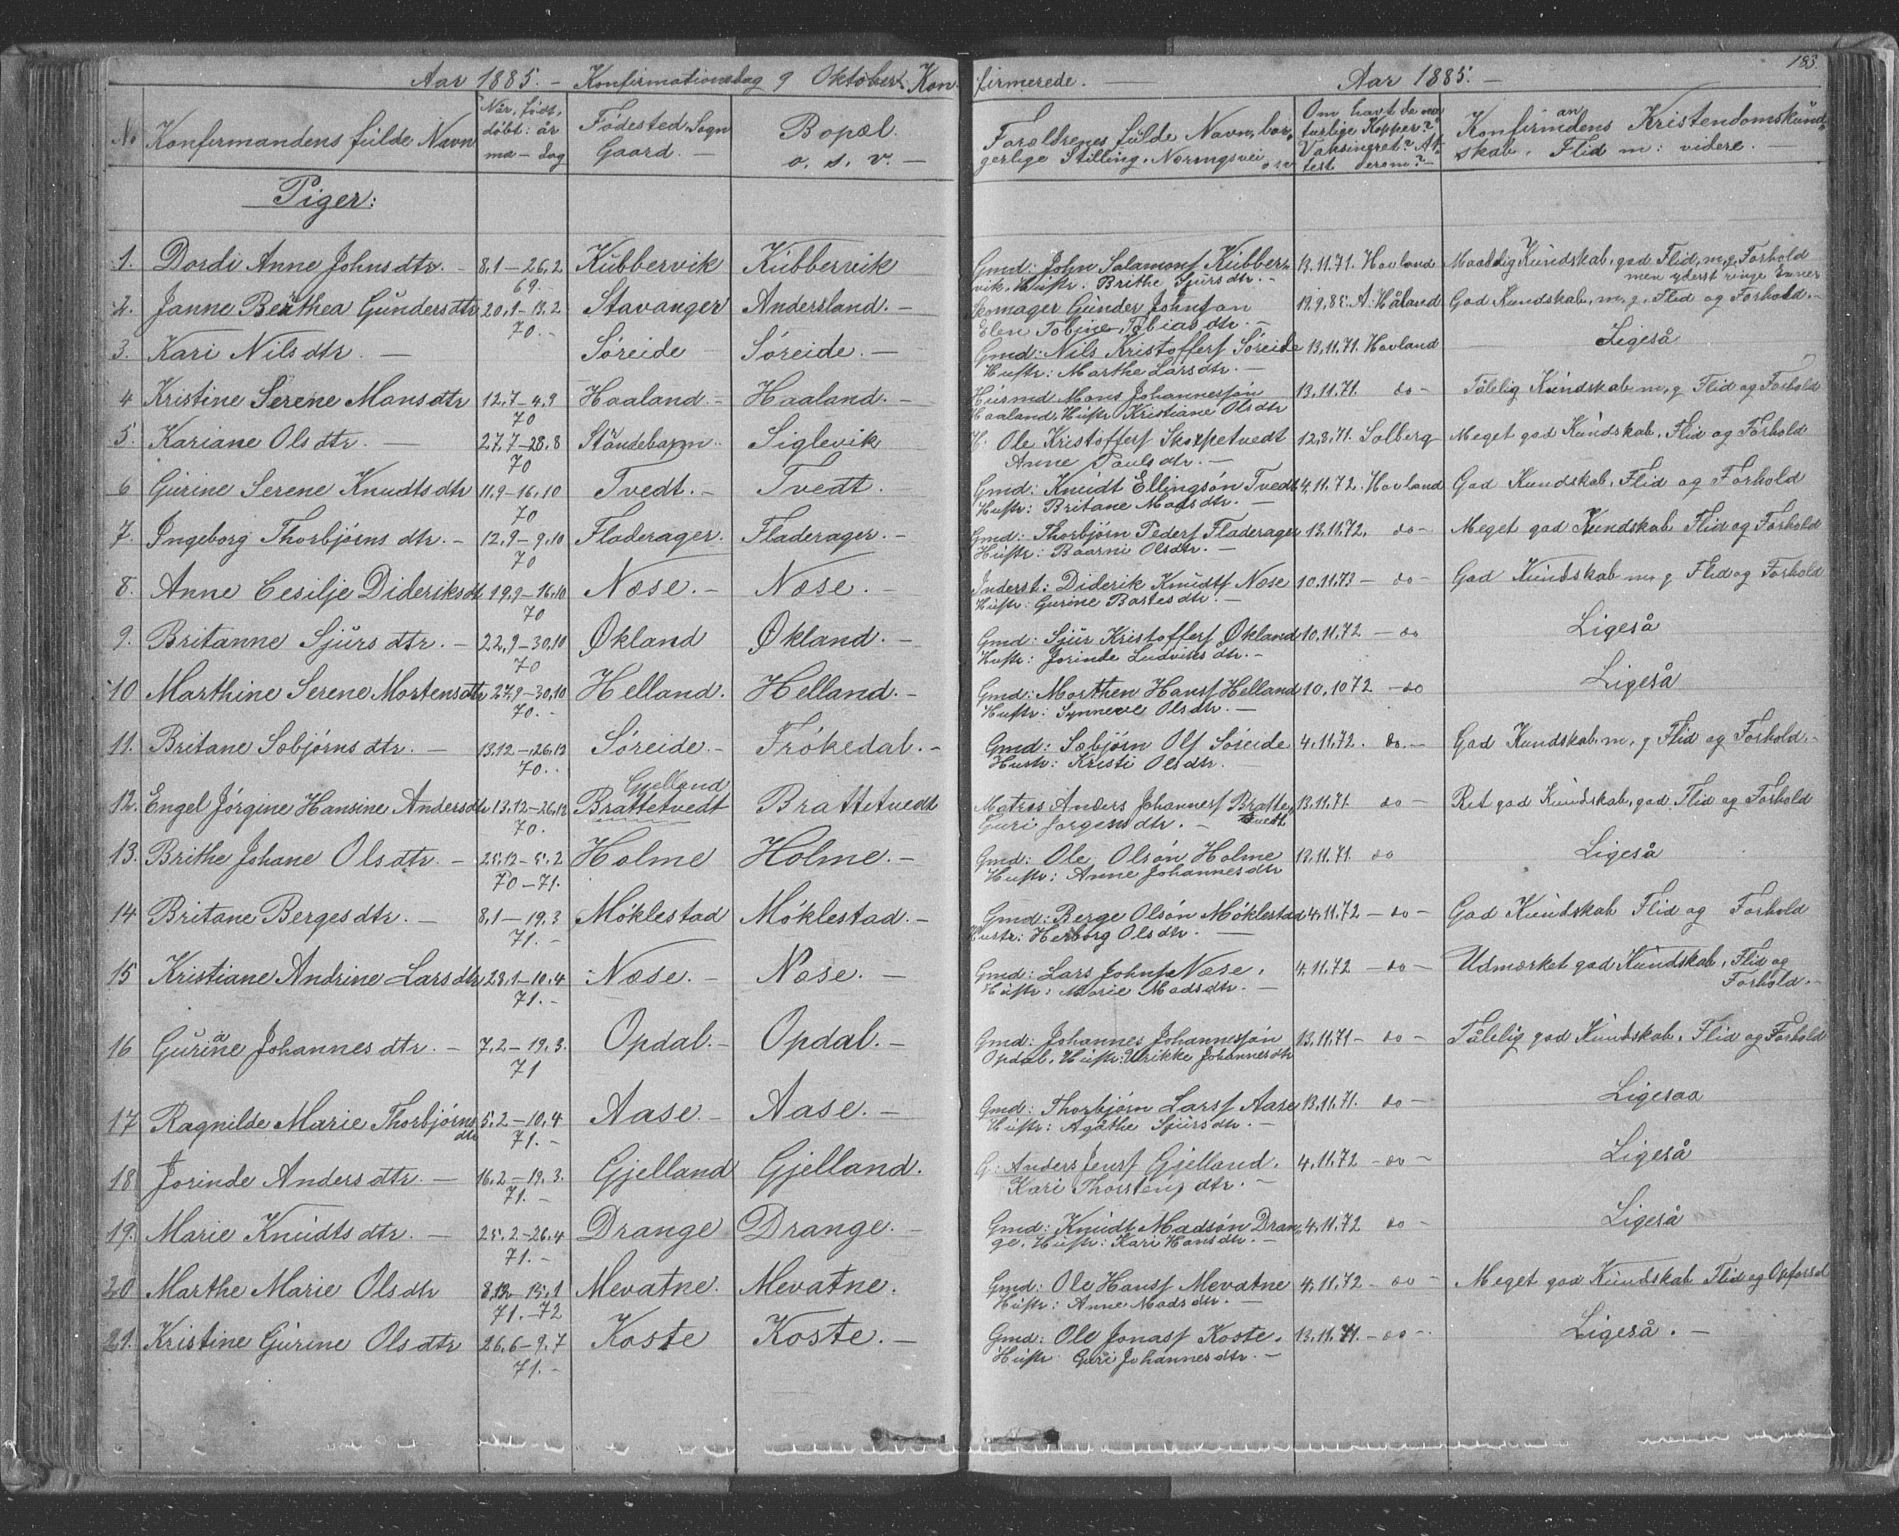 Aar 1885. – Konfirmationsdag 9 Oktober. Konfirmerede. Aar 1885. – 183.
No | Konfirmandens fulde Navn | Når født, døbt: år ma – dag | Fødested, Sogn Gaard. – | Bopæl. o. s. v. – | Forældrenes fulde Navn, borgerlige Stilling, Næringsvei | Om havt de naturlige Kopper? Vaksineret? Attest derom? – | Konfirmandens Kristendomskundskab, Flid m: videre. –
Piger:
1. Dordi Anne Johnsdtr. – | 8.1 – 26.2 69. – | Kubbervik | Kubbervik | Gmd: John Salamons Kubbervik. Hustr. Brithe Sjursdtr. – | 13.11.71. Hovland | Maadelig Kundskab, god Flid, m, g, Forhold men yderst ringe Evner
2. Janne Beathea Gundersdtr | 20.1 – 13.2 70. – | Stavanger | Andersland. – | Skomager Gunder Johnsan Elen Tobine Tobiasdtr. – | 19.9.85. A. Håland | God Kundskab, m, g, Flid og Forhold. –
3. Kari Nilsdtr. – | Søreide | Søreide. – | Gmd: Nils Kristoffers Søreide Hustr: Marthe Larsdtr. – | 13.11.71. Hovland | Ligeså
4 Kristine Serene Monsdtr | 12.7 – 4.9 70 | Haaland. – | Haaland. – | Husmd Mons Johannessøn Haaland, Hustr Kristiane Olsdtr | 13.11.71. do – | Tålelig Kundskab m, g Flid og Forhold
5. Kariane Olsdtr. – | 27.7 – 28.8 70 | Standebarm. | Siglevik | Ole Kristoffers Skorpetvedt Anne Paulsdtr. – | 12.8.71. Solberg | Meget god Kundskab, Flid og Forhold
6 Gurine Serene Knudtsdtr | 11.9 – 16.10 70 | Tvedt. – | Tvedt. | Gmd: Knudt Ellingsøn Tvedt Hustr: Britane Madsdtr. – | 4.11.72. Hovland | God Kundskab, Flid og Forhold
7. Ingeborg Thorbjørnsdtr. – | 12.9 – 9.10 70 | Fladerager. | Fladerager. – | Gmd: Thorbjørn Peders Fladerager Hustr: Baarni Olsdtr. – | 13.11.72. do – | Meget god Kundskab Flid og Forhold
8. Anne Cesilje Dideriksdt | 19.9 – 16.10 70 | Næse. – | Næse. – | Inderst: Diderik Knudts Næse Hustr: Gurine Baresdtr. – | 10.11.73 – do – | God Kundskab m, g Flid og Forhold
9. Britanne Sjursdtr. – | 22.9 – 30.10 70 | Økland | Økland. – | Gmd: Sjur Kristoffers Økland Hustr: Jorinde Ludviksdtr. – | 10.11.72 – do | Ligeså
10 Marthine Serene Mortensdtr | 27.9 – 30.10 70. – | Helland. | Helland. – | Gmd: Morthen Hans Helland Hustr: Synneve Olsdtr. – | 10.10 72 – do | Ligeså
11. Britane Sæbjørnsdtr. – | 13.12 – 26.12 70. – | Søreide. – | Trökedal. – | Gmd: Sæbjørn Ols Søreide Hustr: Kristi Olsdtr. – | 4.11.72. do. – | God Kundskab, m, g Flid og Forhold. –
12. Engel Jørgine Hansine Andersdtr | 13.12 – 26.12 70. | Gjelland Brattetvedt | Brattetvedt | Matros Anders Johannes Brattetvedt Guri Jorgensdtr. – | 13.11.71 do – | Ret god Kundskab, god Flid og Forhold
13. Brithe Johane Olsdtr. – | 25.12 – 5.2 70 – 71. | Holme | Holme. – | Gmd: Ole Olsøn Holme Hustr: Anne Johannesdtr | 13.11.71. do | Ligeså
14 Britane Bergesdtr. – | 8.1 – 19.3 71. – | Møklestad | Møklestad. – | Gmd: Berge Olsøn Møklestad Hustr: Herborg Olsdtr. – | 4.11.72 – do – | God Kundskab Flid og Forhold
15 Kristiane Andrine Larsdtr | 28.1 – 10.4 71. – | Næse. – | Næse. – | Gmd: Lars Johns Næse. Hustr: Marie Madsdtr. – | 4.11.72 – do – | Udmærket god Kundskab, Flid og Forhold. –
16 Gurine Johannesdtr. – | 7.2 – 19.3. 71 | Opdal. – | Opdal. – | Gmd: Johannes Johannessøn Opdal. Hustr: Ulrikke Johannesdtr | 13.11.71 – do – | Tålelig god Kundskab, Flid og Forhold
17 Ragnilde Marie Thorbjørnsdtr | 5.2 – 10.4 71. – | Aase – | Aase. – | Gmd: Thorbjørn Lars Aase Hustr: Agathe Sjursdtr. – | 13.11.71. do – | Ligesaa
18 Jorinde Andersdtr. – | 16.2 – 19.3. 71. – | Gjelland | Gjelland. | G: Anders Jens Gjelland. Kari Thorstensdtr. – | 4.11.72 – do – | Ligeså
19. Marie Knudtsdtr. – | 25.2 – 26.4 71. – | Drange | Drange. – | Gmd: Knudt Madsøn Drange. Hustr: Kari Hansdtr. – | 4.11.72 do – | Ligeså
20 Marthe Marie Olsdtr | 8.12 – 15.1 71. – 72 | Mevatne. | Mevatne. | Gmd: Ole Hans Mevatne Hustr: Anne Madsdtr. – | 4.11.72 – do – | Meget god Kundskab Flid og Opførsel
21. Kristine Gurine Olsdtr | 26.6 – 9.7 71. – | Koste | Koste. – | Gmd: Ole Jonas Koste. Hustr Guri Johannesdtr. – | 13.11.71. – do – | Ligeså. –